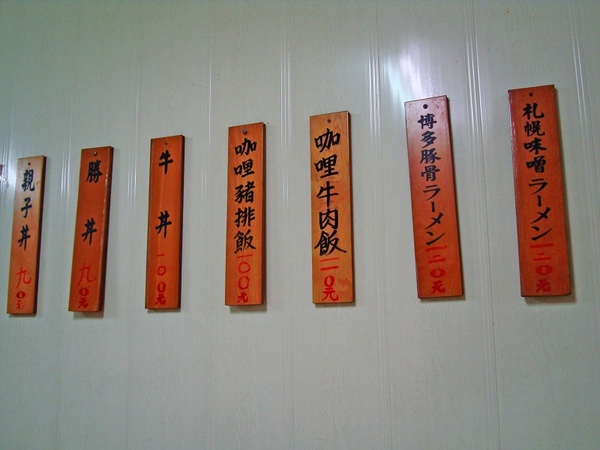 札幌味噌ラーメン一二0元
博多豚骨ラーメン一二0元
咖哩牛肉飯一一0元
咖哩豬排飯一00元
牛丼一00元
勝丼九0元
親子丼九0元